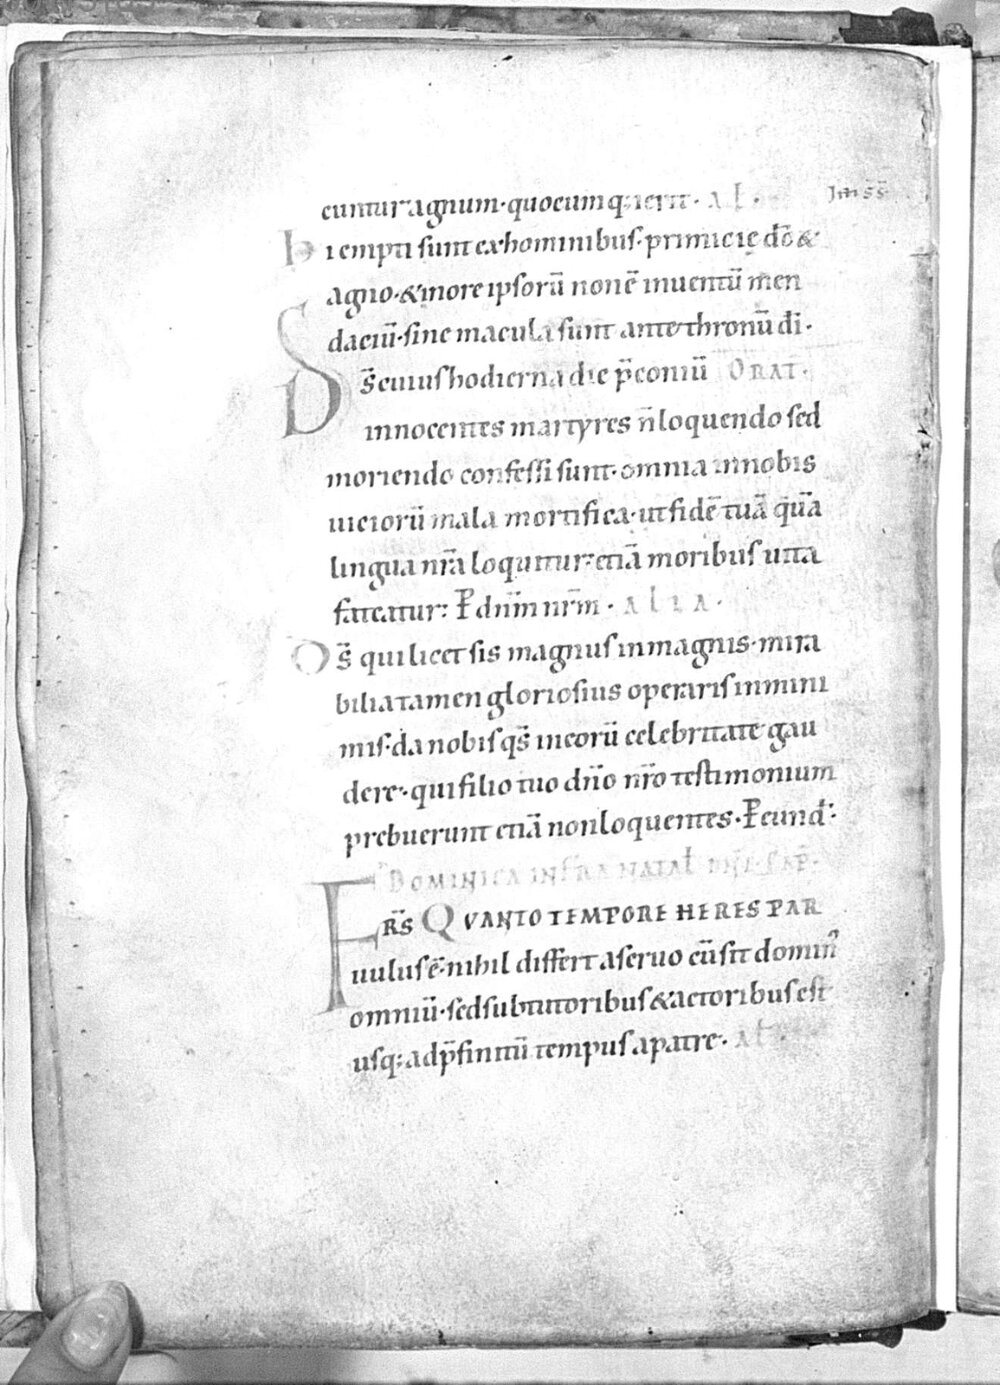 cuntur agnum · quocumq; ierit · Al̅ ·
hi empti sunt ex hominibus · primicię do̅ &
agno · & in ore ipsoru̅ non e̅ inuentu̅ men
daciu̅ · sine macula sunt ante thronu̅ di̅ ·
Ds̅ cuius hodierna die p̅coniu̅ ORAT̅ ·
innocentes martyres n̅ loquendo sed
moriendo confessi sunt · omnia in nobis
uicioru̅ mala mortifica · ut fide̅ tua̅ qua̅
lingua nr̅a loquitur · etia̅ moribus uita
fateatur : P̅ dnm̅ nrm̅ · ALIA ·
Ds̅ qui licet sis magnus in magnis · mira
bilia tamen gloriosius operaris in mini
mis · da nobis qs̅ in eoru̅ celebritate gau
dere · qui filio tuo dn̅o nr̅o testimonium
prebuerunt etia̅ non loquentes · P̅ eund̅ :
DOMINICA INFRA NATAL̅ DNI̅ · CAP̅ ·
FRS̅ QVANTO TEMPORE HERES PAR
uulus e̅ · nihil differt a seruo cu̅ sit domin
omniu̅ · sed sub tutoribus & actoribus est
usq; ad p̅finitu̅ tempus a patre · Al̅ ·